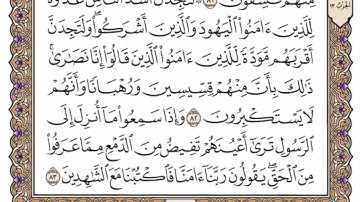 لِّلَّذِينَ ءَامَنُوا۟ ٱلْيَهُودَ وَٱلَّذِينَ أَشْرَكُوا۟ ۖ وَلَتَجِدَنَّ
أَقْرَبَهُم مَّوَدَّةً لِّلَّذِينَ ءَامَنُوا۟ ٱلَّذِينَ قَالُوٓا۟ إِنَّا نَصَٰرَىٰ ۚ
ذَٰلِكَ بِأَنَّ مِنْهُمْ قِسِّيسِينَ وَرُهْبَانًا وَأَنَّهُمْ
لَا يَسْتَكْبِرُونَ ٨٢ وَإِذَا سَمِعُوا۟ مَآ أُنزِلَ إِلَى
ٱلرَّسُولِ تَرَىٰٓ أَعْيُنَهُمْ تَفِيضُ مِنَ ٱلدَّمْعِ مِمَّا عَرَفُوا۟
مِنَ ٱلْحَقِّ ۖ يَقُولُونَ رَبَّنَآ ءَامَنَّا فَٱكْتُبْنَا مَعَ ٱلشَّٰهِدِينَ ٨٣